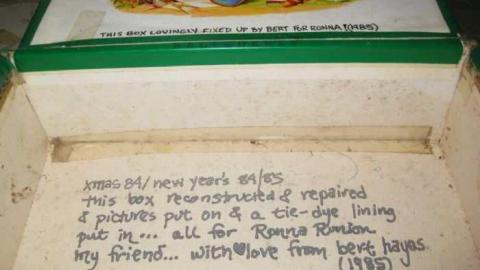 THIS BOX LOVINGLY FIXED UP BY BERT FOR RONNA! (1985)
xmas 84/ new year's 84/85
this box reconstructed & repaired
& pictures put on & a tie-dye lining
put in... all for Ronna
my friend... with♥love from bert hayes.
(1985)